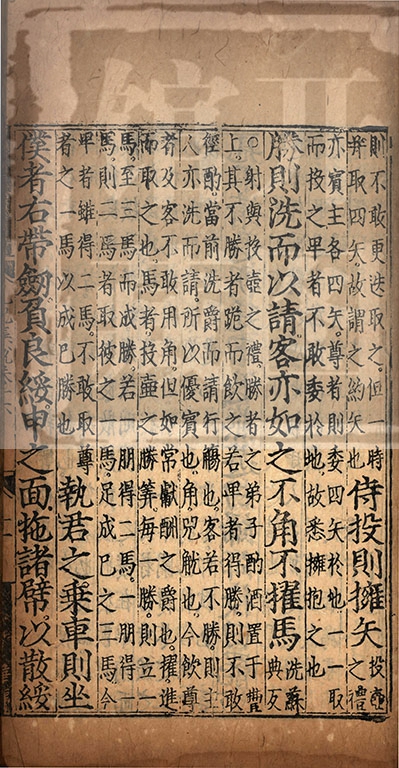 則不敢更迭取之。但一時
并取四矢。故謂之約矢也
侍投則擁矢
投壺
之禮
亦賓主各四矢。尊者則委四矢於地。一一取
而投之。卑者不敢委於地。故悉擁抱之也
勝則洗而以請。客亦如之。不角。不擢馬
洗蘇
典反
○射與投壺之禮。勝者之弟子酌酒置于豐
上。其不勝者跪而飲之。若卑者得勝。則不敢
徑酌。當前洗爵而請行觴也。客若不勝。則主
人亦洗而請。所以優賓也。角。兕觥也。今飲尊
者及客。不敢用角。但如常獻酬之爵也。擢。進
而取之也。馬者。投壺之勝筭。每一勝。則立一
馬。至三馬而成勝。若一朋得二馬。一朋得一
馬。則二馬者取彼之一馬。足成已之三馬。今
卑者雖得二馬。不敢取尊
者之一馬以成已勝也
執君之乘車則坐
僕者右帶劔。負良綏。申之面。拖諸幦。以散綏